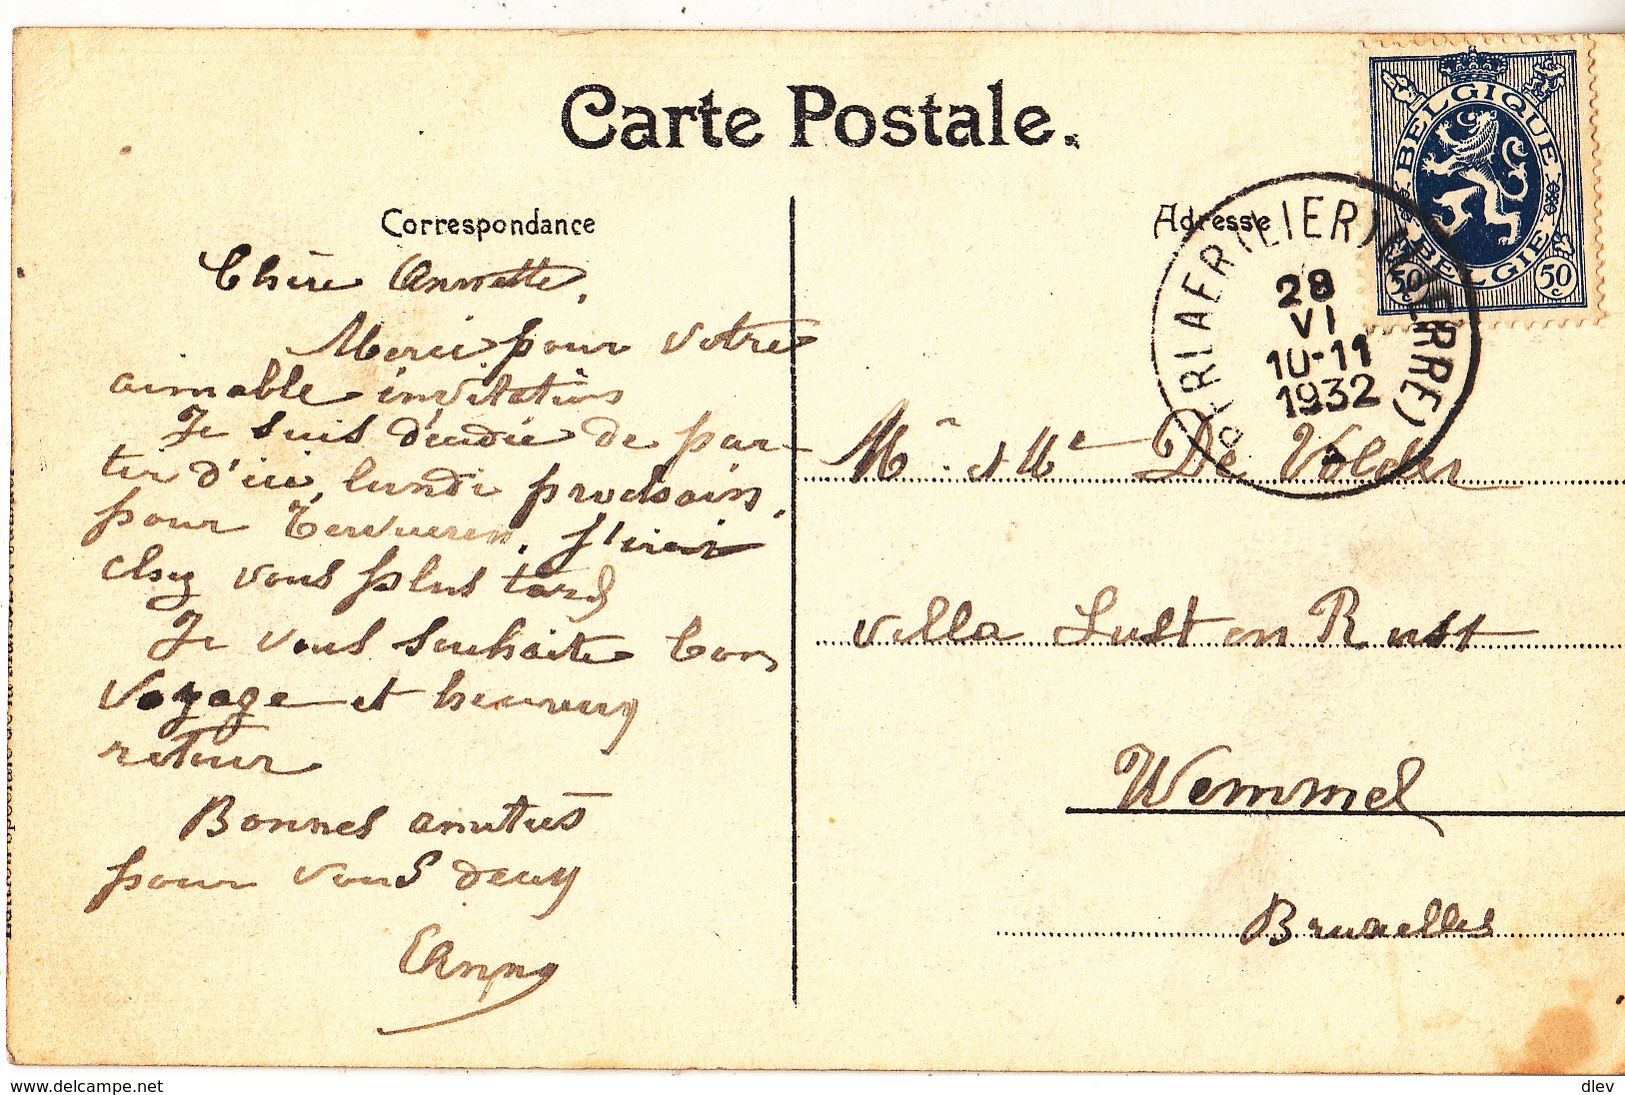 Carte Postale.
Correspondance
Chère Annette,
Merci pour votre
aimable invitation
Je suis décidée de par-
tir d'ici, lundi prochain,
pour Tervueren, J'irai
chez vous plus tard
Je vous souhaite bon
voyage et heureux
retour
Bonnes amitiés
pour vous deux
Anny
Adresse
BELGIQUE
BELGIE
50c
50c
(LIER)
28
VI
10-11
1932
Mr et Me De Volder
villa Lust en Rust
Wemmel
Bruxelles
www.delcampe.net
dlev